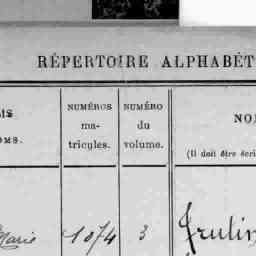 RÉPERTOIRE ALPHABÉT
NUMÉROS
ma-
tricules.
NUMÉRO
du
volume.
NO
(Il doit être écri
OMS.
Marie
1074
3